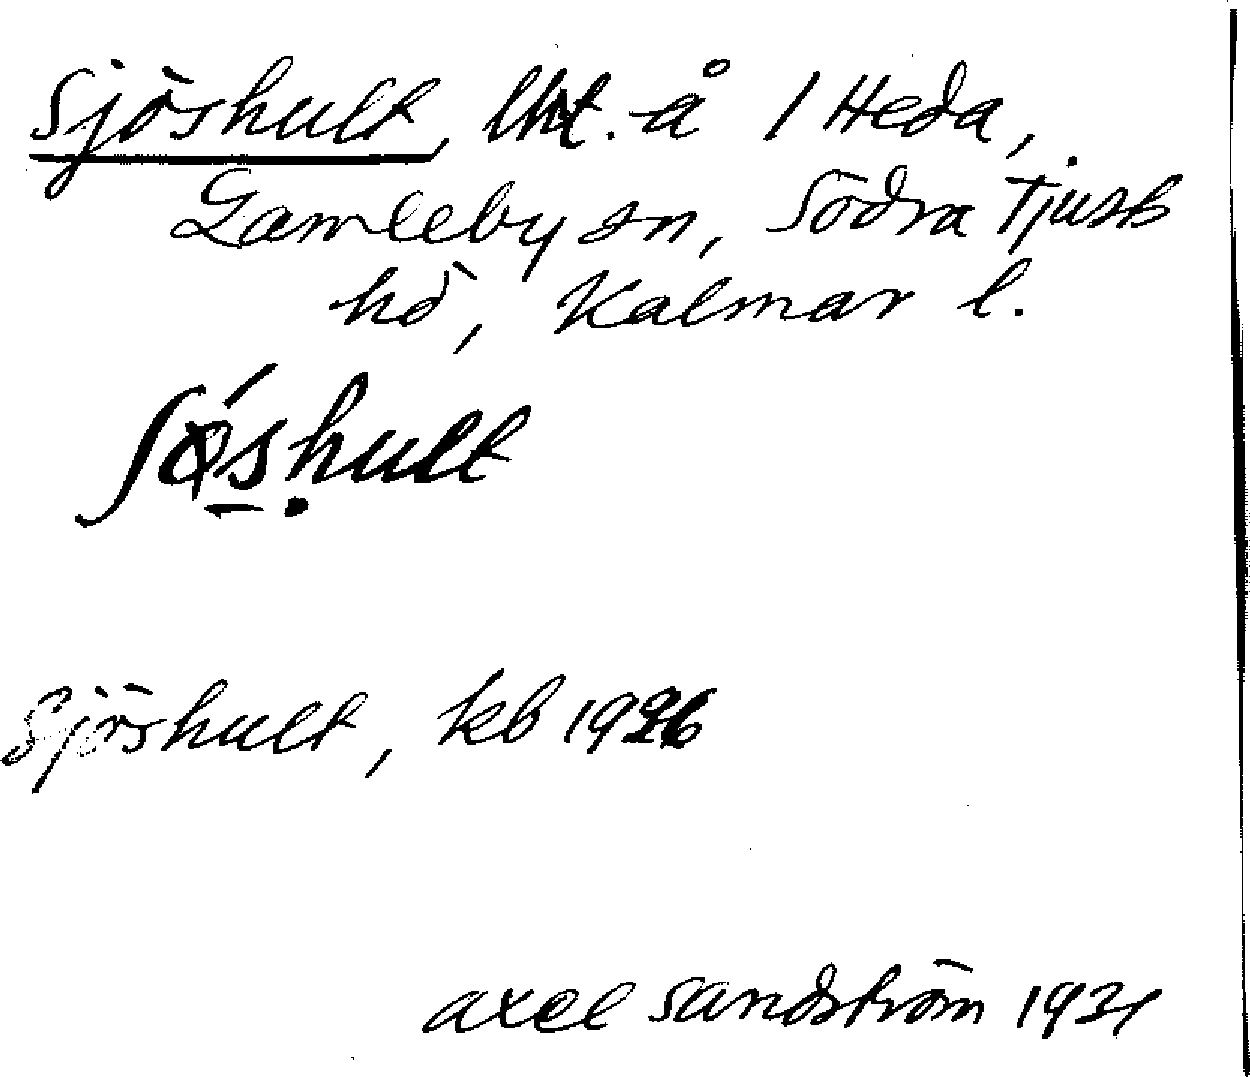 Sjöshult, lht. å 1 Heda,
Gamleby sn, Södra Tjusts
hd, Kalmar l.
ʃø´s̱hult
Sjöshult, kb 1926
Axel Sandström 1931